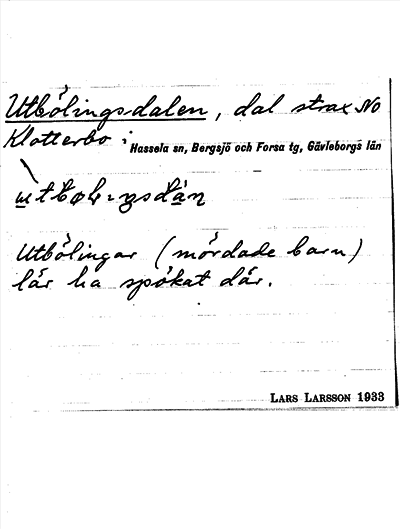 Utbölingsdalen, dal strax NO
Klotterbo i Hassela sn, Bergsjö och Forsa tg, Gävleborgs län
Utbölingar (mördade barn)
lär ha spökat där.
LARS LARSSON 1933